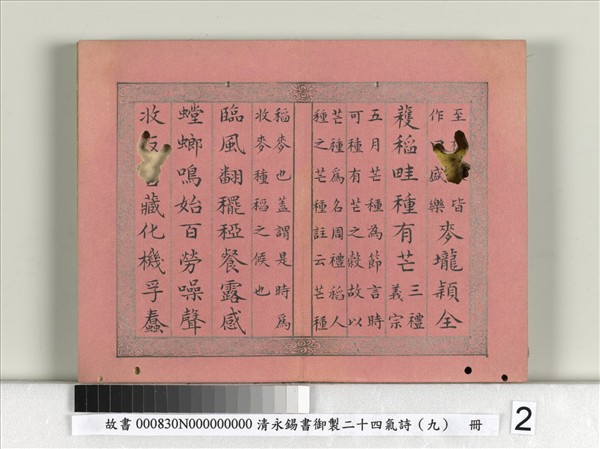 至 皆
作 盛樂
麥壠穎全
穫稻畦種有芒
三禮
義宗
五月芒種為節言時
可種有芒之穀故以
芒種為名周禮稻人
種之芒種註云芒種
稻麥也蓋謂是時為
收麥種稻之候也
臨風翻䆉稏餐露感
螳螂鳴始百勞噪聲
收 藏化機孚蠢
故書 000830N000000000 清永錫書御製二十四氣詩（九） 冊
2